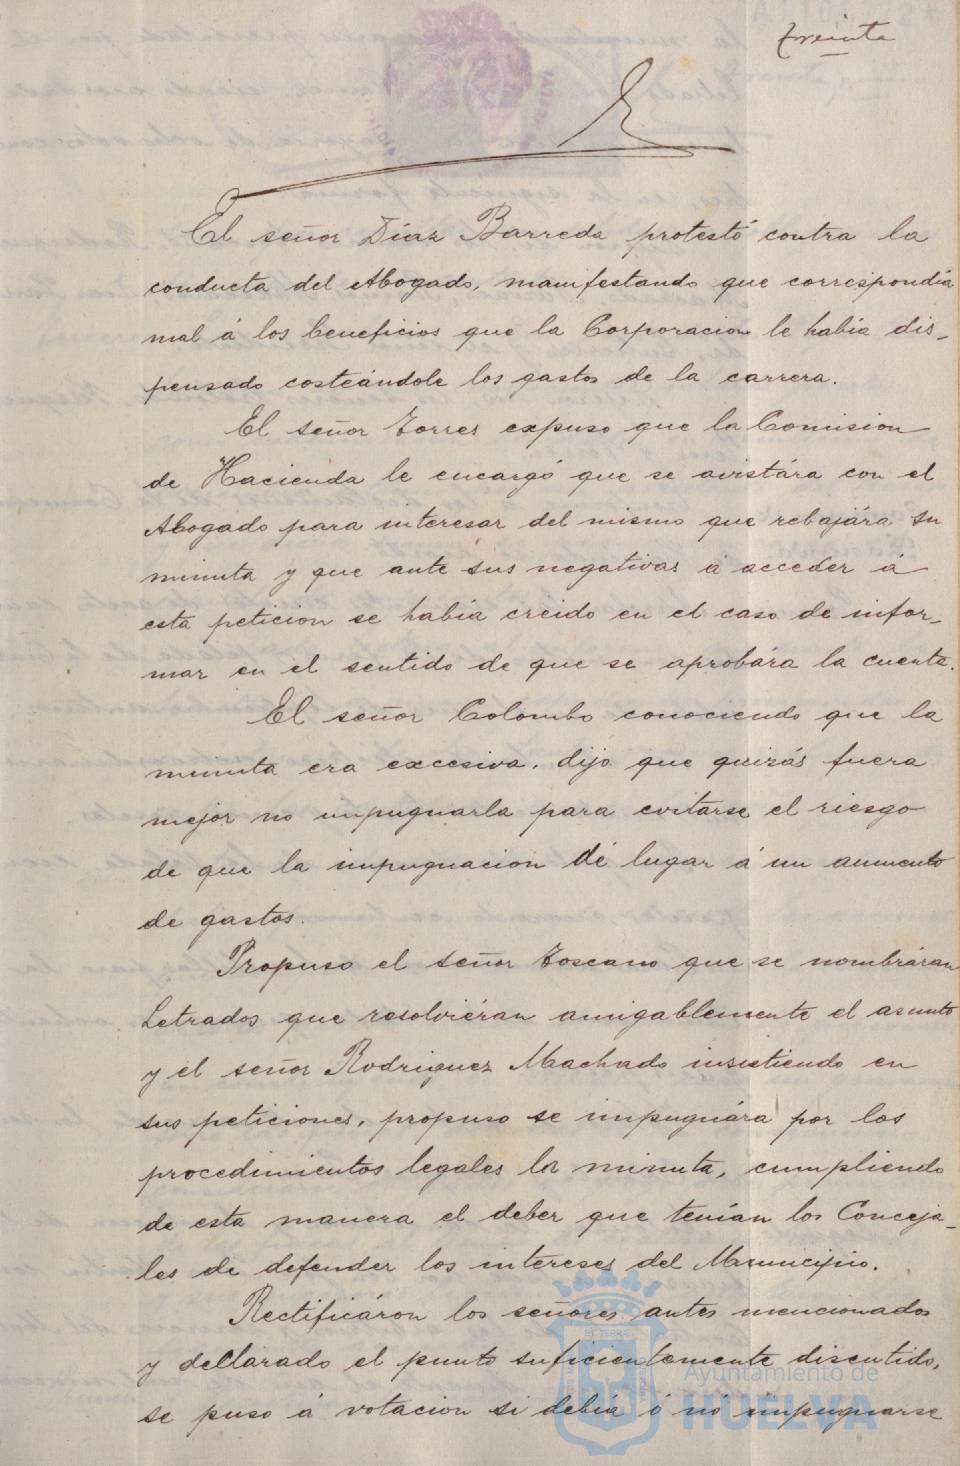 treinta
El señor Díaz Barreda protestó contra la
conducta del Abogado, manifestando que correspondia
mal á los beneficios que la Corporacion le había dis-
pensado costeándole los gastos de la carrera.
El señor Torres expuso que la Comision
de Hacienda le encargó que se avistára con el
Abogado para interesar del mismo que rebajára su
minuta y que ante sus negativas á acceder á
esta peticion se había creido en el caso de infor-
mar en el sentido de que se aprobára la cuenta.
El señor Colombo conociendo que la
minuta era excesiva, dijo que quizás fuera
mejor no impugnarla para evitarse el riesgo
de que la impugnacion dé lugar á un aumento
de gastos.
Propuso el señor Toscano que se nombráran
Letrados que resolviéran amigablemente el asunto
y el señor Rodriguez Machado insistiendo en
sus peticiones, propuso se impugnára por los
procedimientos legales la minuta, cumpliendo
de esta manera el deber que tenían los Conceja-
les de defender los intereses del Municipio.
Rectificáron los señores antes mencionados
y declarado el punto suficientemente discutido,
se puso á votacion si debía ó nó impugnarse
Ayuntamiento de
HUELVA